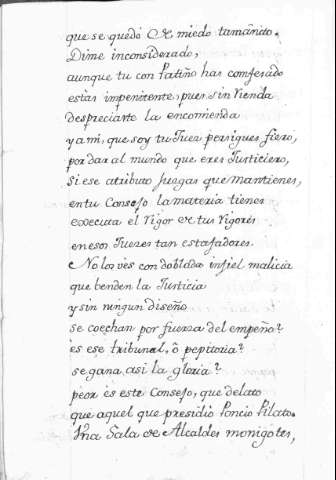 que se quedó de miedo tamáñito.
Dime inconsiderado,
aunque tu con Patiño has confesado
estàs impenitente, pues sin Vienda
despreciaste la encomienda
ya mi, que soy tu Juez persigues fiero,
por dar al mundo que eres Justiciero,
Si ese atributo Juzgas que mantienes,
en tu Consejo la materia tienes
executa el Vigor de tus Vigores
en esos Juezes tan estafadores.
No los vès con doblada infiel malicia
que benden la Justicia
y sin ningun diseño
se coechan por fuerza del empeño?
ès ese tribunal, ô pepitoria?
se gana asi la gloria?
peor ès este Consejo, que delato
que aquel que presidiò Poncio Pilato.
Vna Sala de Alcaldes monigotes,